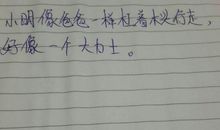 小明像爸爸一样扛着木头行走，
好像一个大力士。